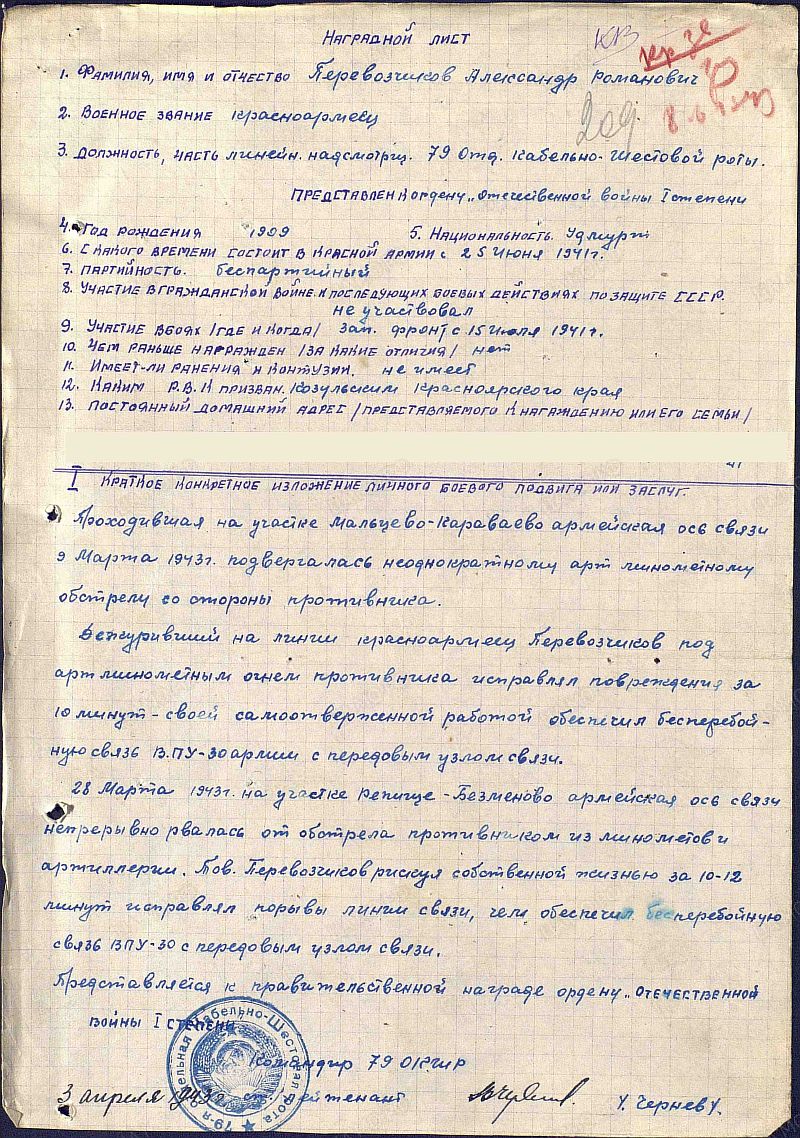 НАГРАДНОЙ ЛИСТ
КВ
209
1. ФАМИЛИЯ, ИМЯ И ОТЧЕСТВО Перевозчиков Александр Романович
2. ВОЕННОЕ ЗВАНИЕ красноармеец
3. ДОЛЖНОСТЬ, ЧАСТЬ линейн. надсмотрщ. 79 Отд. Кабельно-Шестовой роты.
ПРЕДСТАВЛЕН К ордену „Отечественной войны I степени
4. ГОД РОЖДЕНИЯ 1909 5. НАЦИОНАЛЬНОСТЬ. Удмурт
6. С КАКОГО ВРЕМЕНИ СОСТОИТ В КРАСНОЙ АРМИИ с 25 Июня 1941г.
7. ПАРТИЙНОСТЬ. беспартийный
8. УЧАСТИЕ В ГРАЖДАНСКОЙ ВОЙНЕ И ПОСЛЕДУЮЩИХ БОЕВЫХ ДЕЙСТВИЯХ ПО ЗАЩИТЕ СССР.
не участвовал
9. УЧАСТИЕ В БОЯХ /ГДЕ И КОГДА/ Зап. фронт с 15 Июля 1941г.
10. ЧЕМ РАНЬШЕ НАГРАЖДЕН /ЗА КАКИЕ ОТЛИЧИЯ/ нет
11. ИМЕЕТ-ЛИ РАНЕНИЯ И КОНТУЗИИ. не имеет
12. КАКИМ Р.В.К ПРИЗВАН. Козульским Красноярского края
13. ПОСТОЯННЫЙ ДОМАШНИЙ АДРЕС /ПРЕДСТАВЛЯЕМОГО К НАГРАЖДЕНИЮ ИЛИ ЕГО СЕМЬИ/
I КРАТКОЕ КОНКРЕТНОЕ ИЗЛОЖЕНИЕ ЛИЧНОГО БОЕВОГО ПОДВИГА ИЛИ ЗАСЛУГ.
Проходившая на участке Мальцево-Караваево армейская ось связи
9 Марта 1943г. подвергалась неоднократному арт минометному
обстрелу со стороны противника.
Дежуривший на линии красноармеец Перевозчиков под
артминометным огнем противника исправлял повреждения за
10 минут - своей самоотверженной работой обеспечил бесперебой-
ную связь ВПУ-30 армии с передовым узлом связи.
28 Марта 1943г. на участке Репище-Безменово армейская ось связи
непрерывно рвалась от обстрела противником из минометов и
артиллерии. Тов. Перевозчиков рискуя собственной жизнью за 10-12
минут исправлял порывы линии связи, чем обеспечил бесперебойную
связь ВПУ-30 с передовым узлом связи.
Представляется к правительственной награде ордену „ОТЕЧЕСТВЕННОЙ
ВОЙНЫ I СТЕПЕНИ
Командир 79 ОКШР
3 апреля 1943г. ст. Лейтенант /. ЧЕРНЕВ /.
79-я Отдельная Кабельно-Шестовая Рота